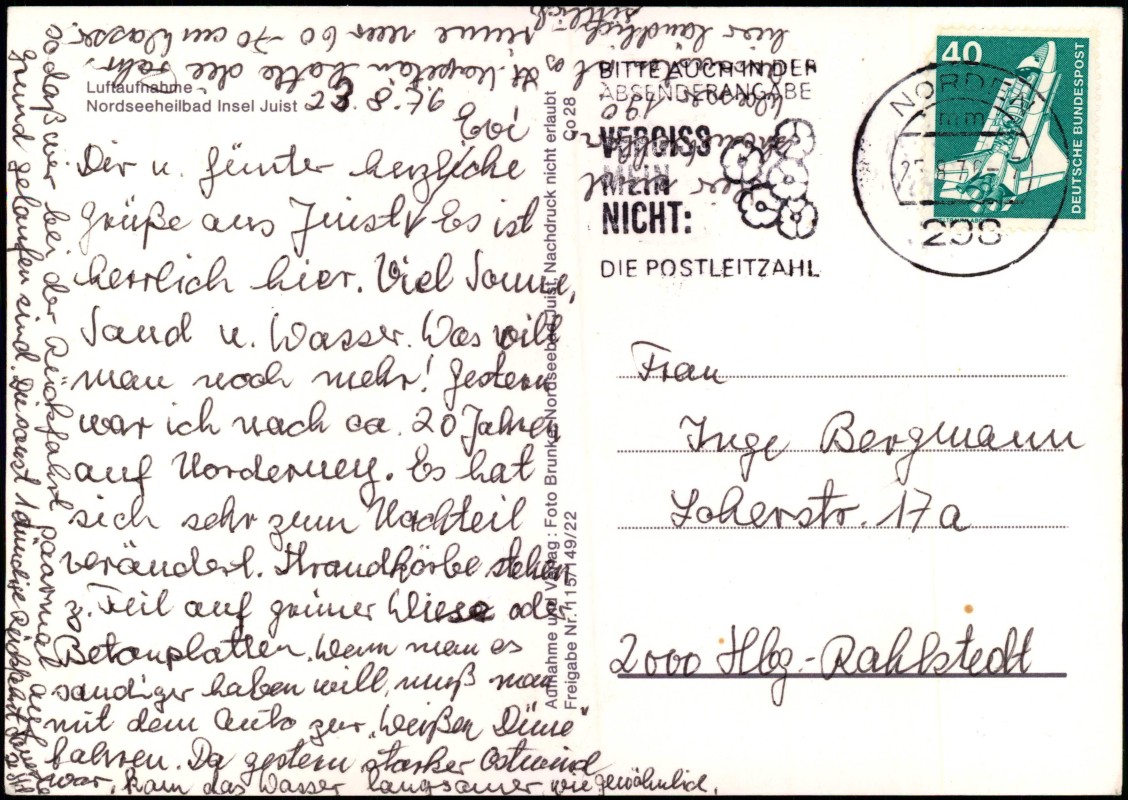 Luftaufnahme
Nordseeheilbad Insel Juist
23.8.76
Dir u. Günter herzliche
Grüße aus Juist. Es ist
herrlich hier. Viel Sonne,
Sand u. Wasser. Was will
man noch mehr! Gestern
war ich nach ca. 20 Jahren
auf Norderney. Es hat
sich sehr zum Nachteil
verändert. Strandkörbe stehen
z. Teil auf grüner Wiese oder
Betonplatten. Wenn man es
sandiger haben will, muß man
mit dem Auto zur "Weißen Düne"
fahren. Da gestern starker Ostwind
war, kam das Wasser langsamer wie gewöhnlich,
sodaß wir bei der Rückfahrt paarmal auf
Grund gelaufen sind. Die sonst 1 stündige Rückfahrt dauerte
lt. Kapitän hatte die
Rinne nur 60-70 cm Wasser
hier ländlich
sittlich
Evi
Aufnahme und Verlag: Foto Brunke, Nordseebad Juist, Nachdruck nicht erlaubt
Freigabe Nr. 115/149/22
Co 28
BITTE AUCH IN DER
ABSENDERANGABE
VERGISS
MEIN
NICHT:
DIE POSTLEITZAHL
40
DEUTSCHE BUNDESPOST
298
Frau
Inge Bergmann
Loherstr. 17a
2000 Hbg-Rahlstedt